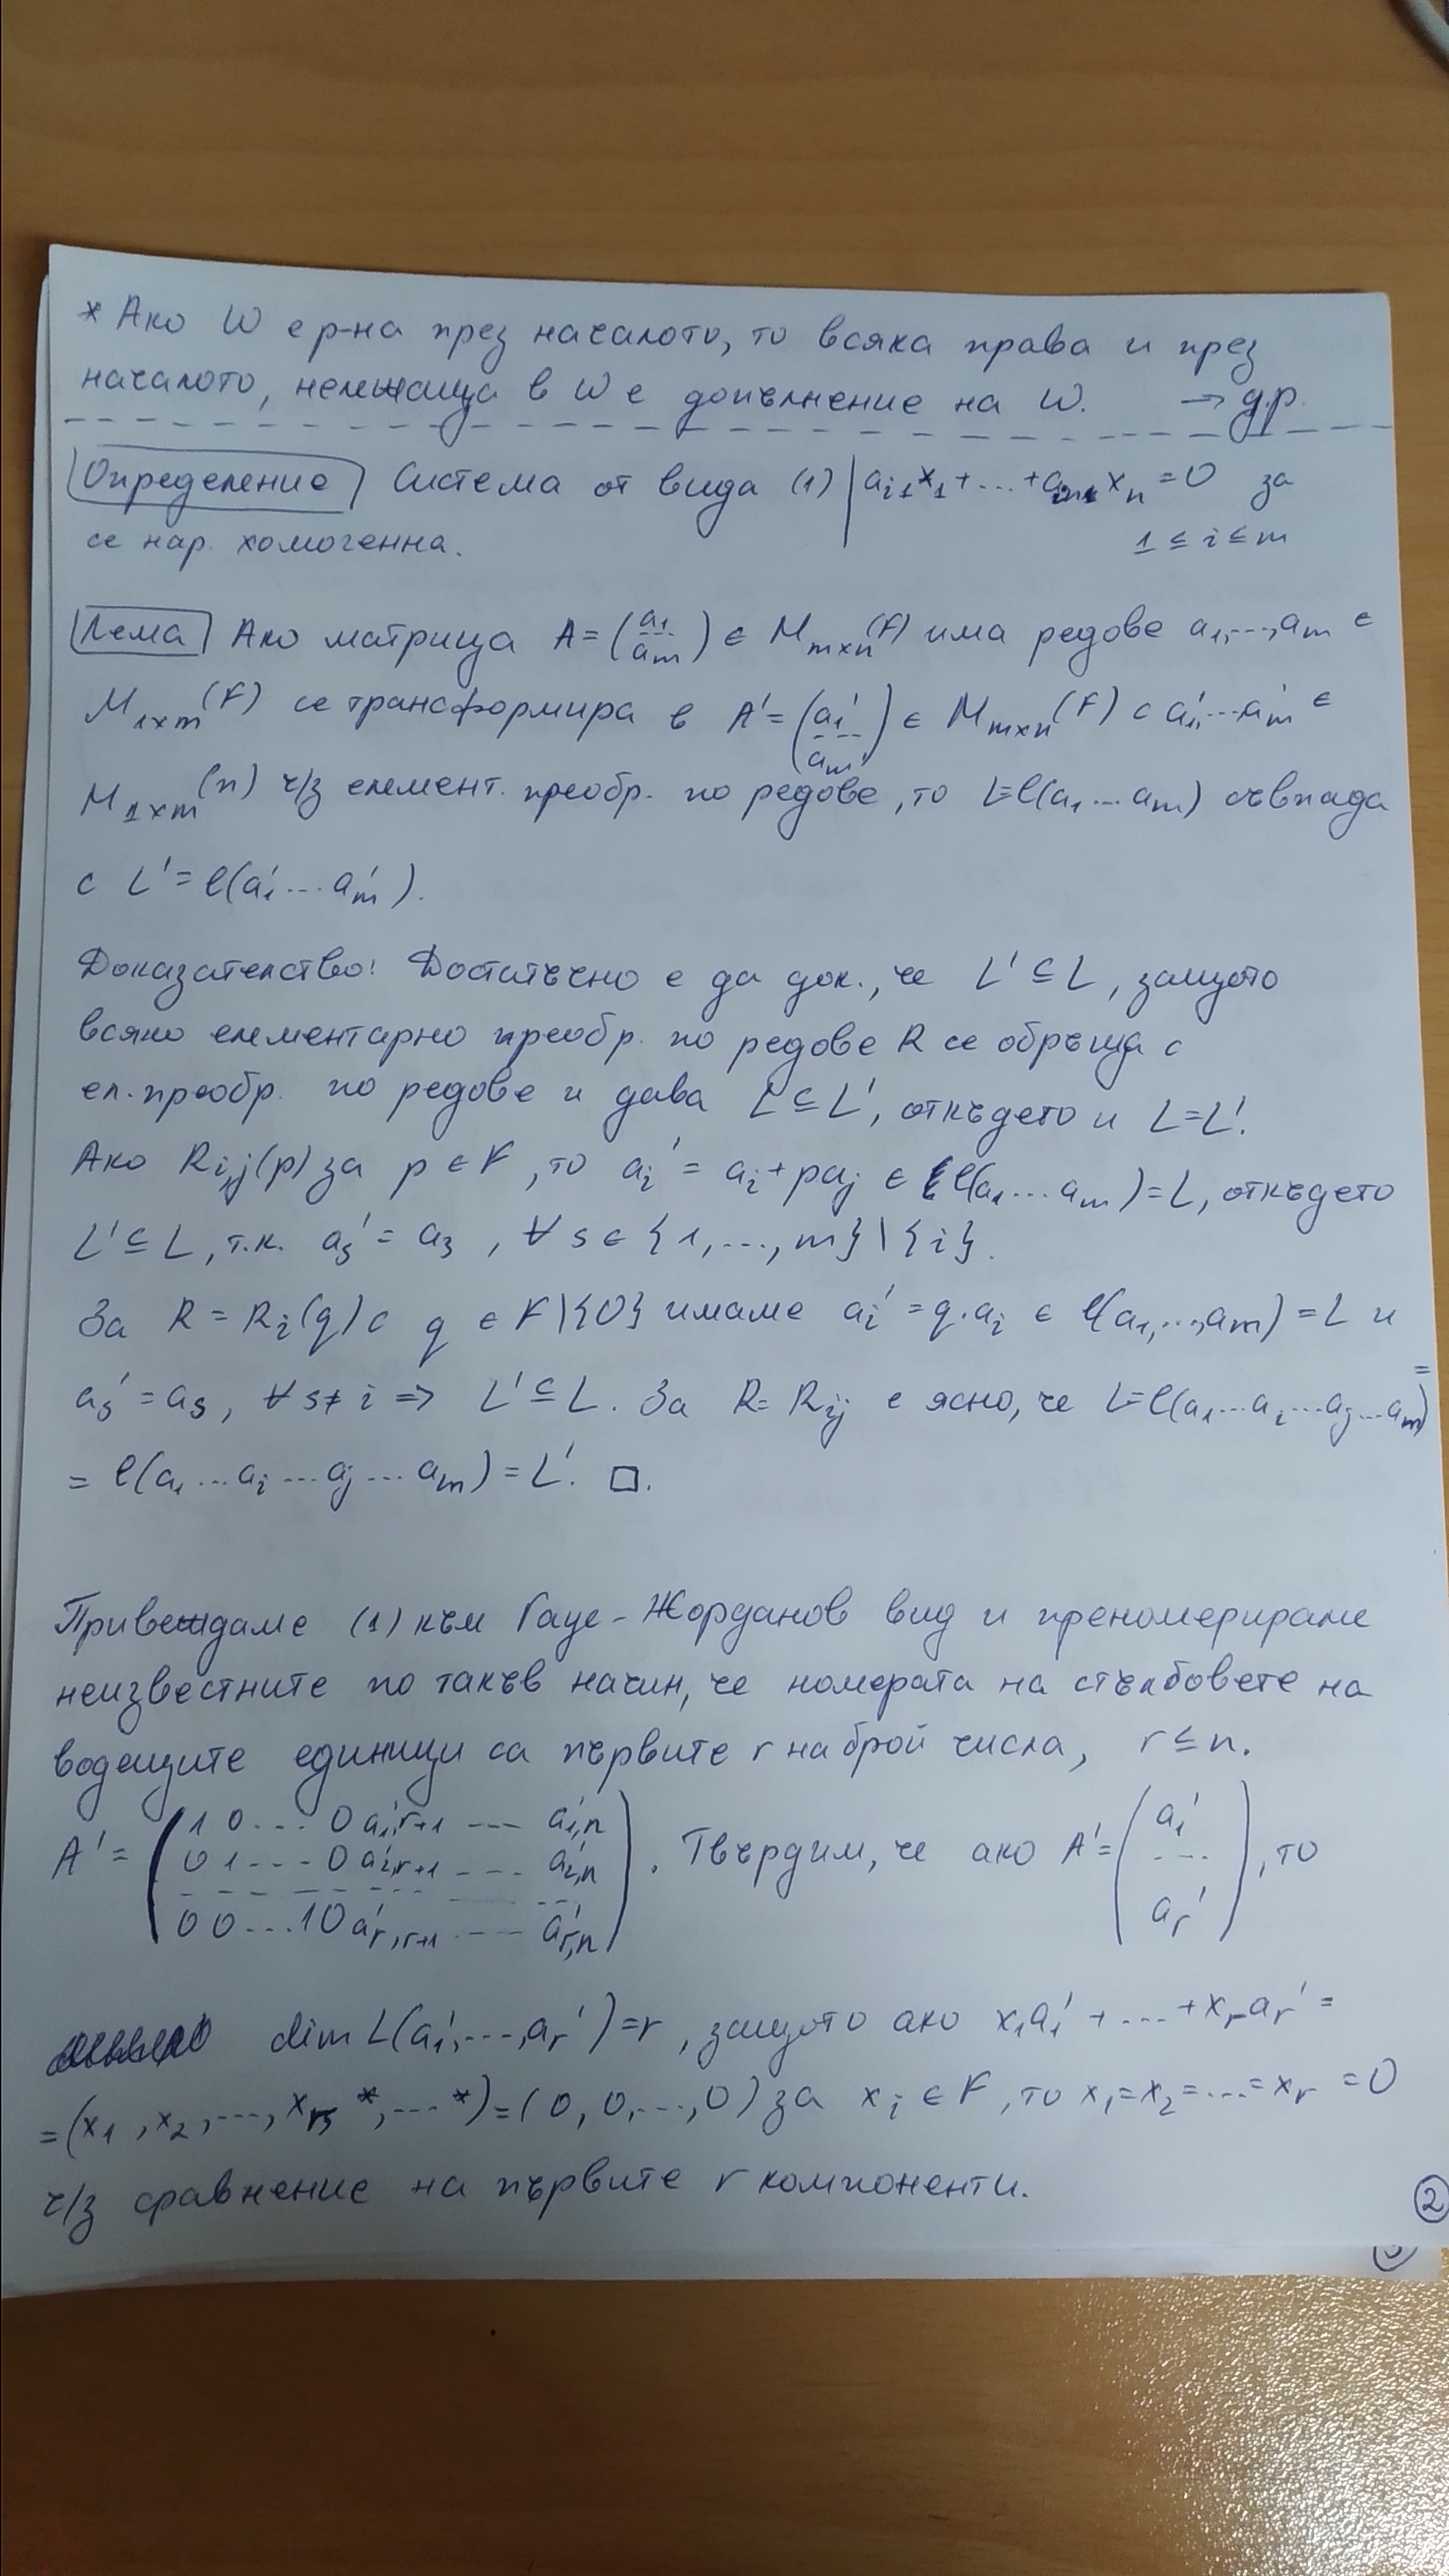 * Ако W е р-на през началото, то всяка права и през
началото, нележаща в W е допълнение на W. → д.р.
Определение Система от вида (1) | aᵢ₁x₁+...+aᵢₙxₙ=0 за
се нар. хомогенна. 1 ≤ i ≤ m
Лема Ако матрица A = (a₁ --- aₘ) ∈ Mₘₓₙ(F) има редове a₁,...,aₘ ∈
M₁ₓₘ(F) се трансформира в A' = (a₁' --- aₘ') ∈ Mₘₓₙ(F) с a₁',...aₘ' ∈
M₁ₓₘ(n) ч/з елемент. преобр. по редове, то L=ℓ(a₁...aₘ) съвпада
с L' = ℓ(a₁'...aₘ').
Доказателство: Достатъчно е да док., че L' ⊆ L, защото
всяко елементарно преобр. по редове R се обръща с
ел. преобр. по редове и дава L ⊆ L', откъдето и L=L'.
Ако Rᵢ,ⱼ(p) за p ∈ F, то aᵢ' = aᵢ+paⱼ ∈ ℓ(a₁...aₘ) = L, откъдето
L' ⊆ L, т.к. aₛ' = aₛ, ∀ s ∈ {1,...,m} \ {i}.
За R = Rᵢ(q) с q ∈ F\{0} имаме aᵢ' = q.aᵢ ∈ ℓ(a₁,...,aₘ) = L и
aₛ' = aₛ, ∀ s≠i => L' ⊆ L. За R = Rᵢⱼ е ясно, че L=ℓ(a₁...aᵢ...aⱼ...aₘ) =
= ℓ(a₁...aᵢ...aⱼ...aₘ) = L'. □.
Привеждаме (1) към Гаус-Жорданов вид и преномерираме
неизвестните по такъв начин, че номерата на стълбовете на
водещите единици са първите r на брой числа, r ≤ n.
A' = (1 0 .... 0 a'₁,ᵣ₊₁ --- a'₁,ₙ
0 1 --- 0 a'₂,ᵣ₊₁ ---- a'₂,ₙ
0 0 ... 1 0 a'ᵣ,ᵣ₊₁ ---- a'ᵣ,ₙ). Твърдим, че ако A' = (a₁' --- aᵣ'), то
dim L(a₁',...,aᵣ') = r, защото ако x₁a₁' + ... + xᵣaᵣ' =
= (x₁, x₂, ..., xᵣ, *, ... *) = (0, 0, ..., 0) за xᵢ ∈ F, то x₁=x₂=...=xᵣ = 0
ч/з сравнение на първите r компоненти.
2